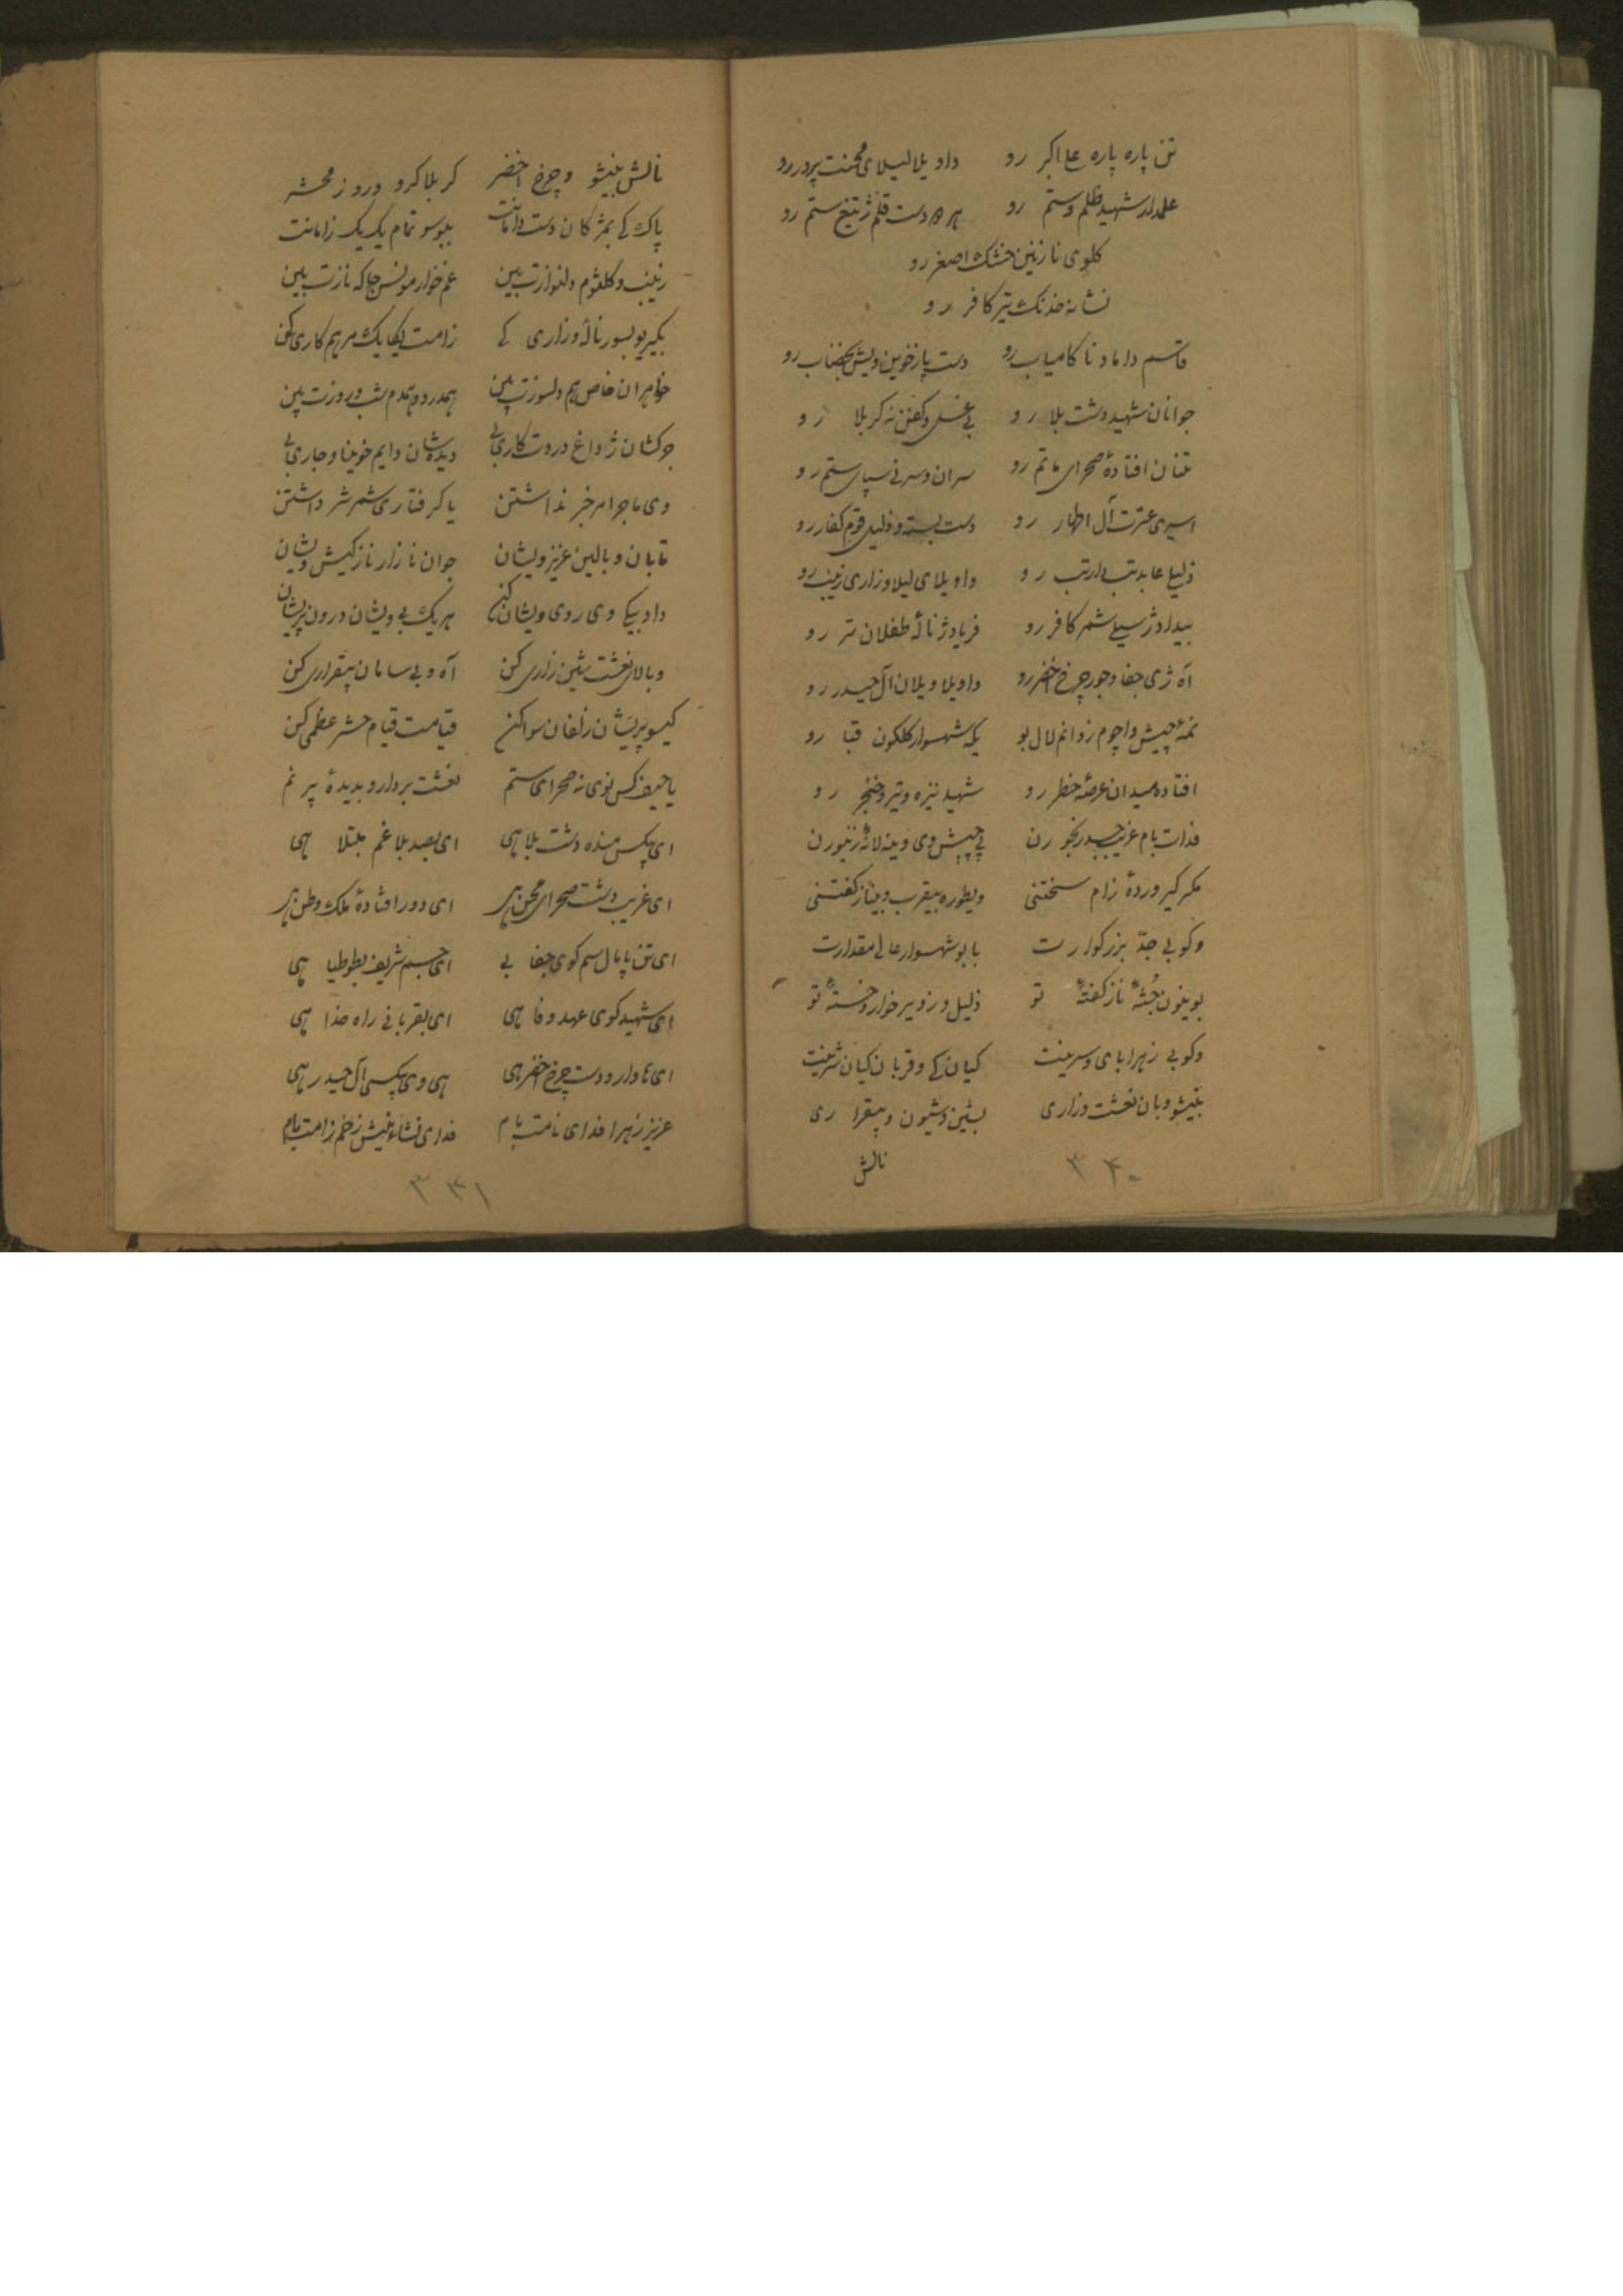 تن پاره پاره علی اکبر رو داد یلا لیلای محنت پرور رو
علمدار شهید ظلم وستم رو هر دو دست قلم ژ تیغ ستم رو
کلوی نازنین خشک اصغر رو
نشانه خدنک تیر کافر رو
قاسم داماد نا کامیاب رو دست پا ژ خوین ویش خضاب رو
جوانان شهید دشت بلا رو بی غسل وکفن نه کربلا رو
تنان افتادۀ صحرای ماتم رو سران وسر نی سپای ستم رو
اسیری عترت آل اطهار رو دست بسته و ذلیل قوم کفار رو
ذلیل عابد تب دار تب رو واویلای لیلا وزاری زینب رو
بیداد ژ سیلی شمر کافر رو فریاد ژ نالۀ طفلان تر رو
آه ژی جفا وجور چرخ اخضر رو واویلا ویلان آل حیدر رو
نمه چیش واچوم زوانم لال بو یکه شهسوار کلکون قبا رو
افتاده میدان عرصۀ خطر رو شهید نیزه وتیر وخنجر رو
فدات بام غریب رنجورن پی چیش وی وینه لانۀ زنبورن
مکر کیر وردۀ زام سختنی ویطوره بیقرب وبیناز کفتنی
وکو بی جدّ بزرکوارت بابو شهسوار عالی مقدارت
بوینون جُثۀ ناز کفتۀ تو ذلیل و زویر خوار وخستۀ تو
وکو بی زهرا بای وسرینت کیان کی وقربان کیان شرینت
بنیشو وبان نعشت وزاری بشین وشیون وبیقراری
نالش
۳۴۰
نالش بنیشو وچرخ اخضر کربلا کرو وروز محشر
پاک کی بمژکان دست دامانت ببوسو تمام یک یک زامانت
زینب وکلثوم دلنوازت بین غم خوار مونس جاکه نازت بین
بکیریو بسور نالۀ وزاری کی زامت یکایک مرهم کاری کن
خواهران خاص هم دلسوزت بین همدرد وهمدم شب وروزت بین
جرکشان ژ داغ دردت کاری بی دیده شان دایم خویناو جاری بی
وی ماجرا مر خبر نداشتن یا کرفتاری شمر شر داشتن
تابان وبالین عزیز ویشان جوان نازار نازکیش ویشان
داد بیکی وی روی ویشان کن هر یک بی ویشان درون پریشان
وبالای نعشت شین زاری کن آه وبی سامان بیقراری کن
کیسو پریشان زلفان سوا کن قیامت قیام حشر عظمی کن
یا حیف کس نوی نه صحرای ستم نعشت بردارو بدیدۀ پر نم
ای بیکس منده دشت بلا هی ای بصد بلا غم مبتلا هی
ای غریب دشت صحرای محن هی ای دور افتادۀ ملک وطن هی
ای تن پامال سم کوی جفا بی ای جسم شریف بطوطیا هی
ای شهید کوی عهد وفا هی ای بقربانی راه خدا هی
ای هاوار ودست چرخ اخضر هی هی وی بیکسی آل حیدر هی
عزیز زهرا فدای نامت بام فدای نشاء نیش زخم زامت بام
۳۴۱